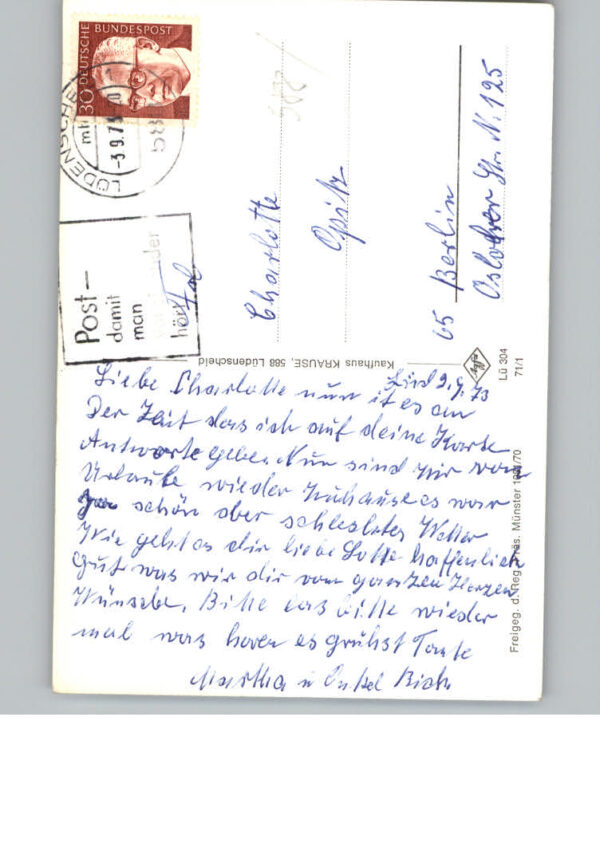 DEUTSCHE
BUNDESPOST
30
LÜDENSCHEID
-3.9.73
588
Post—
damit
man
Charlotte
Opitz
65 Berlin
Osloer Str. N. 125
Kaufhaus KRAUSE, 588 Lüdenscheid
Lü 304
71/1
Freigeg. d. Reg. Präs. Münster
Lüd 2.9.73
Liebe Charlotte nun ist es an
Der Zeit das ich auf deine Karte
Antworte geben Nun sind wir vom
Urlaube wieder Zuhause es war
schön aber schleshtes Wetter
Wie geht es dir liebe Lotte hoffenlich
Gut was wir dir vom ganzen Herzen
Wünsche. Bitte las bitte wieder
mal was horen es grühst Tante
Martha u Onkel